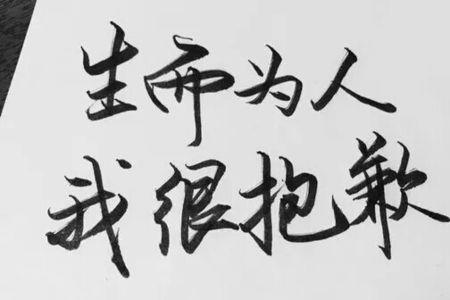 生而为人
我很抱歉